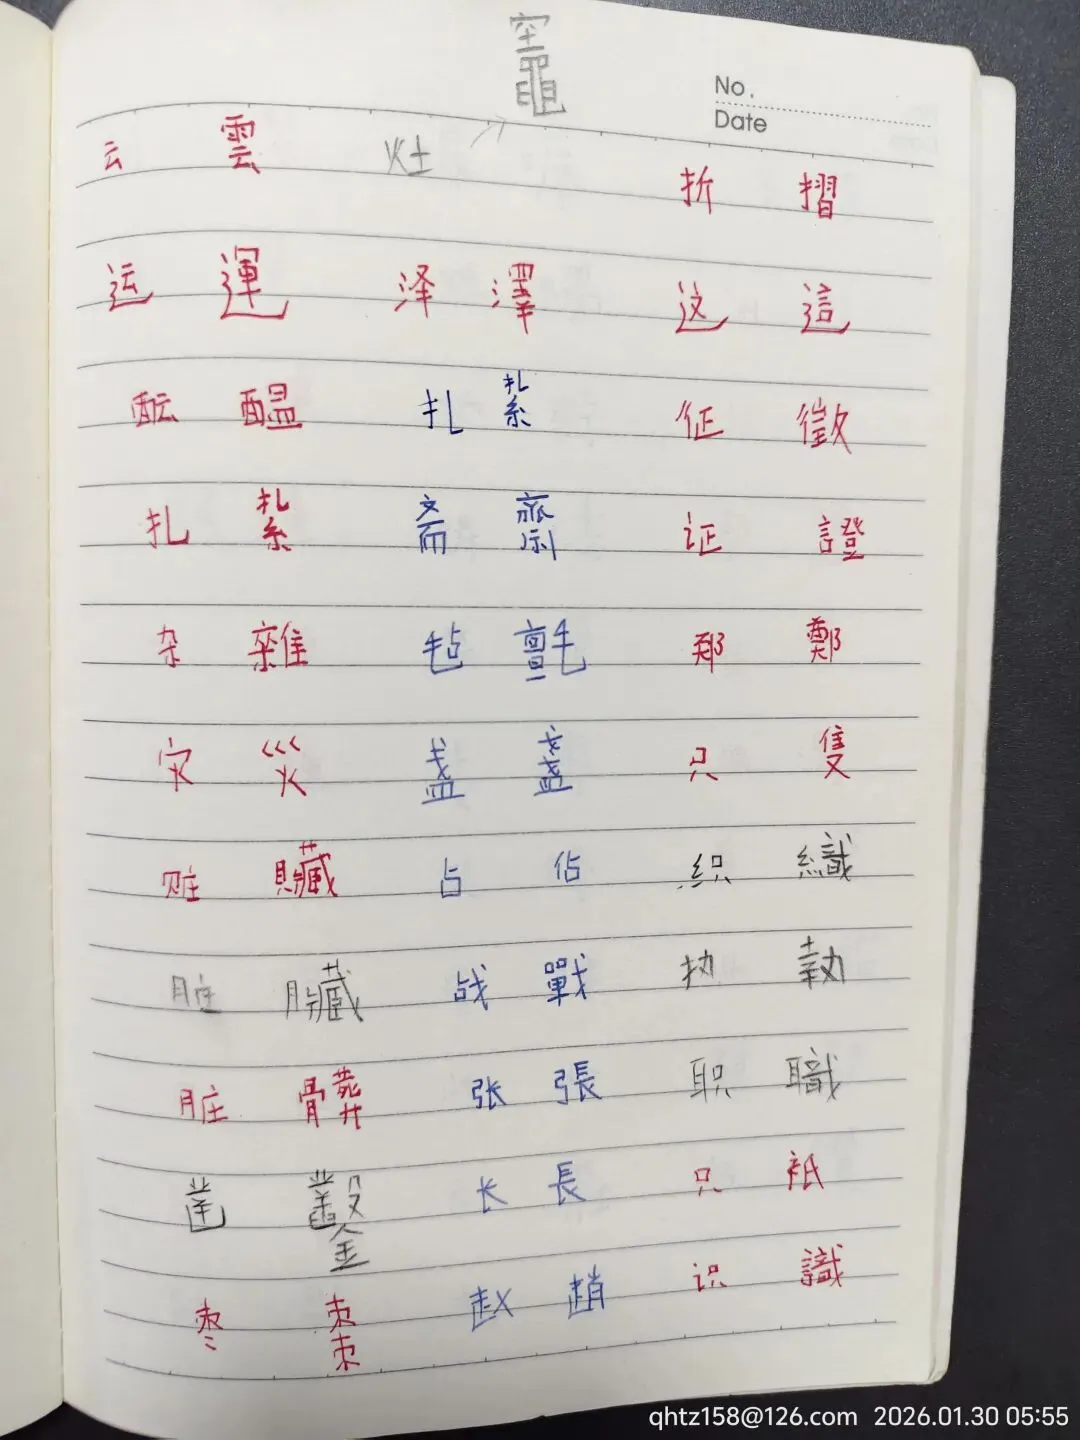 竈
No.
Date
云 雲 灶 折 摺
运 運 泽 澤 这 這
酝 醖 扎 紮 征 徵
扎 紮 斋 齋 证 證
杂 雜 毡 氈 郑 鄭
灾 災 盏 盞 只 隻
赃 贓 占 佔 织 織
脏 臟 战 戰 执 執
脏 髒 张 張 职 職
凿 鑿 长 長 只 衹
枣 棗 赵 趙 识 識
qhtz158@126.com 2026.01.30 05:55